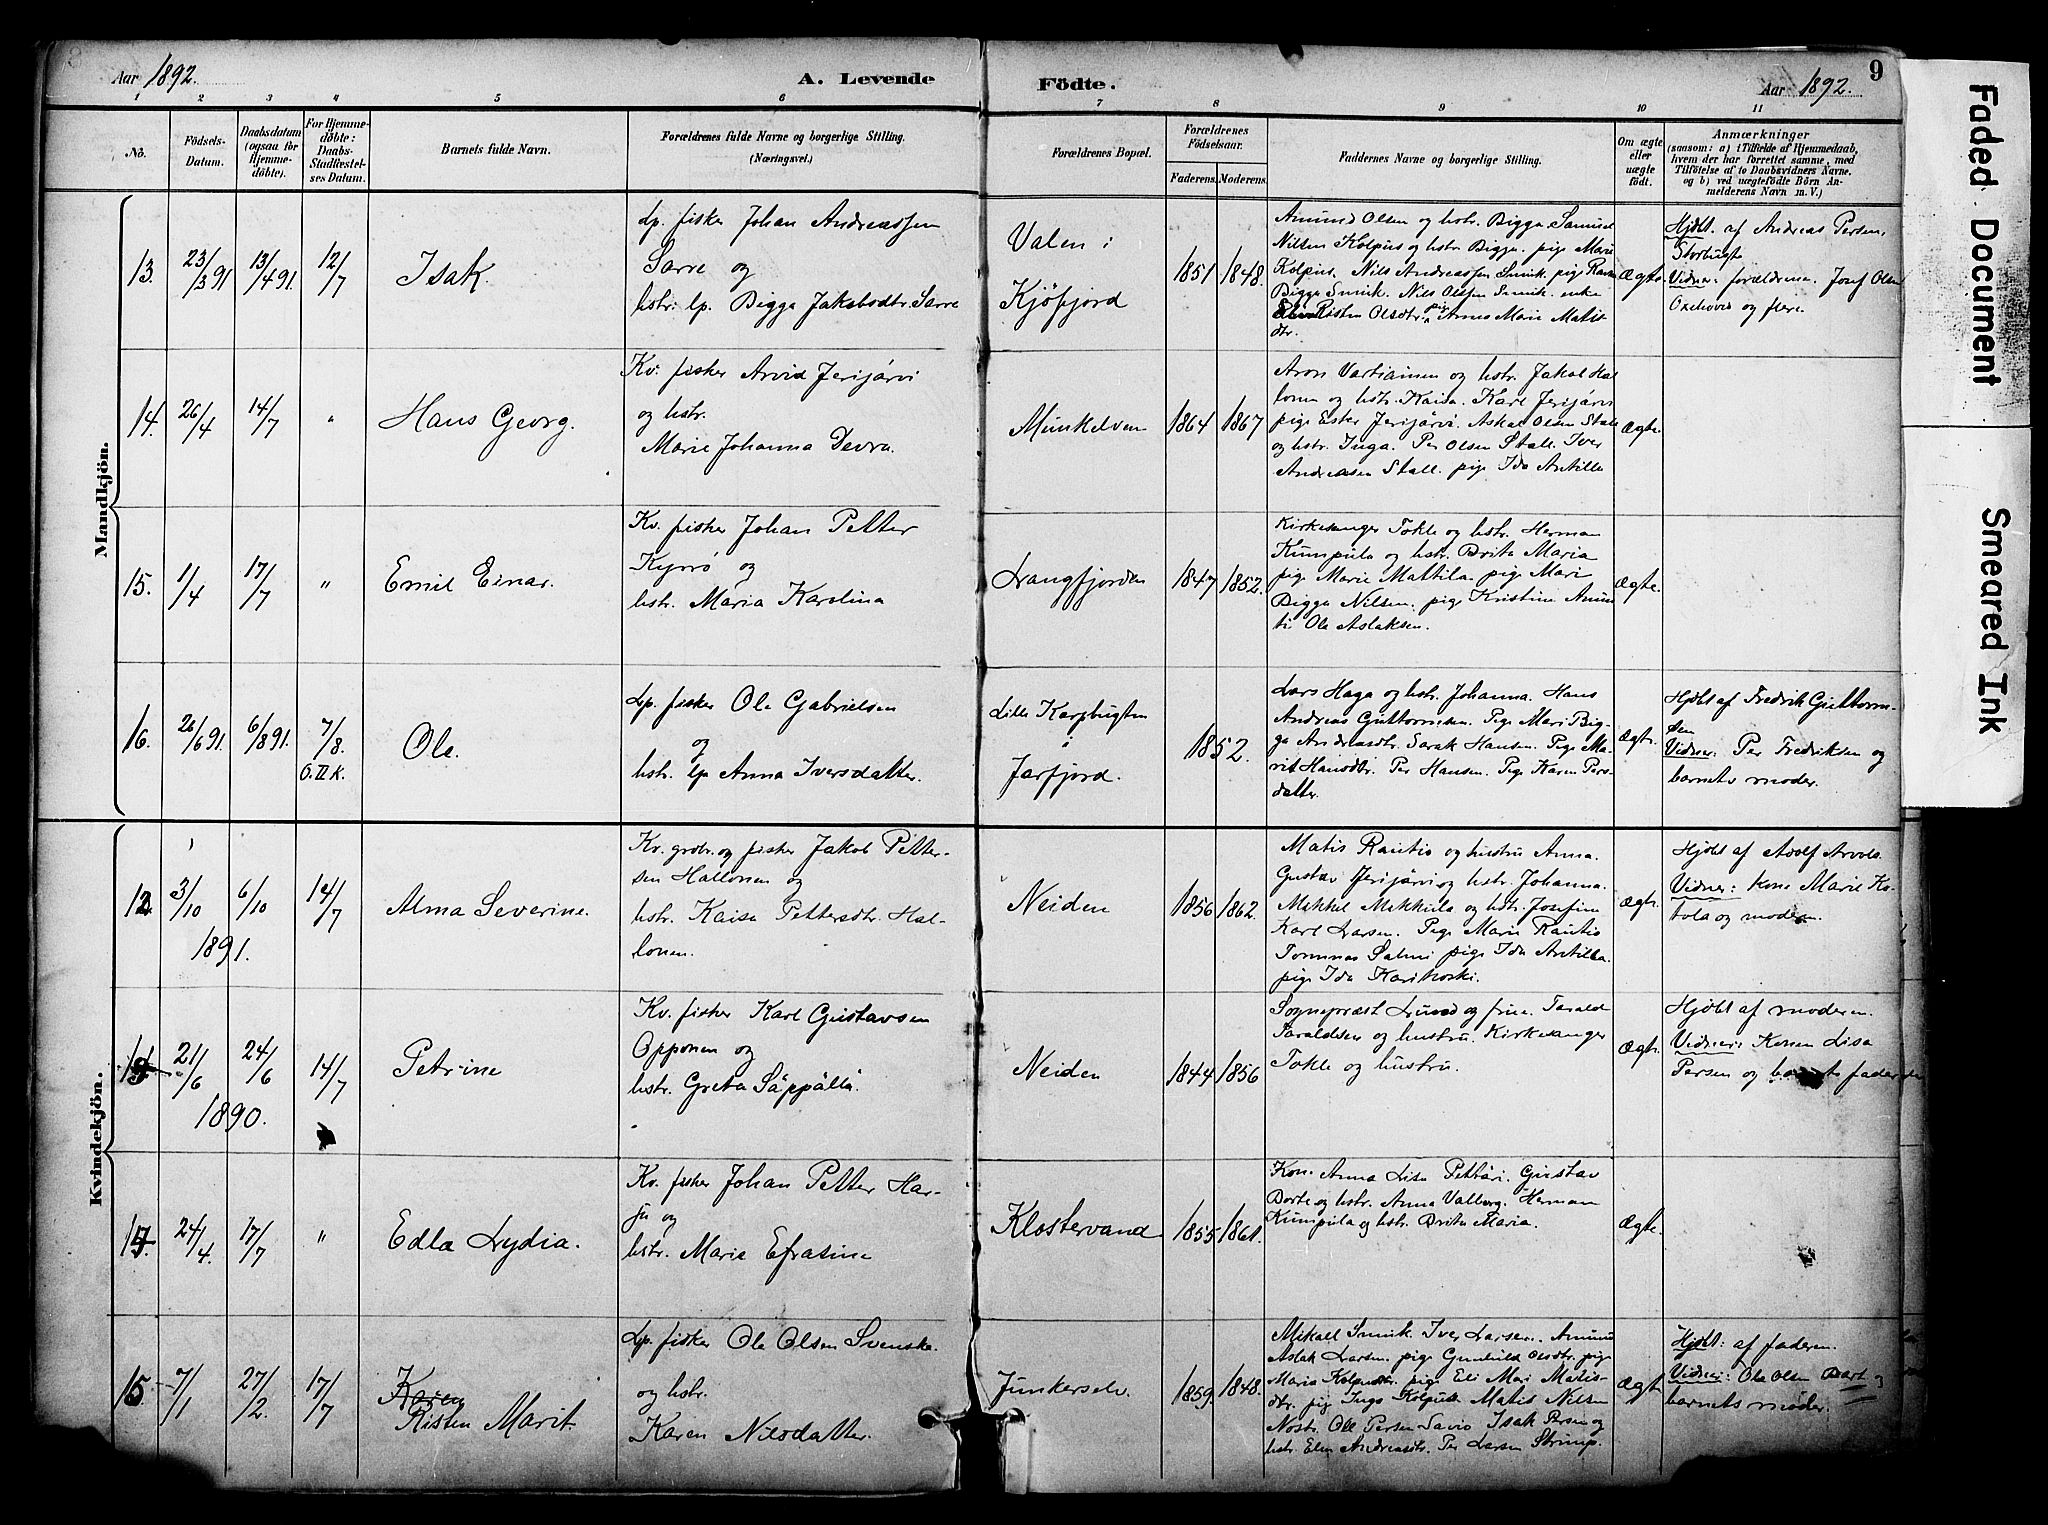 Aar 1892.
A. Levende
Födte.
Aar 1892.
9
1 2 3 4 5 6 7 8 9 10 11
No.
Födsels-
Datum.
Daabsdatum
(ogsaa for
Hjemme-
döbte).
For Hjemme-
döbte:
Daabs-
Stadfæstel-
ses Datum.
Barnets fulde Navn.
Forældrenes fulde Navne og borgerlige Stilling.
(Næringsvei.)
Forældrenes Bopæl.
Forældrenes
Födselsaar.
Faderens.
Moderens.
Faddernes Navne og borgerlige Stilling.
Om ægte
eller
uægte
födt.
Anmærkninger
(saasom: a) i Tilfælde af Hjemmedaab,
hvem der har forrettet samme, med
Tilföielse af to Daabsvidners Navne.
og b) ved uægtefödte Börn An-
melderens Navn m. V.)
Mandkjön.
13.
23/391
13/491.
12/7
Isak.
Lp. fisker Johan Andreassen
Sarre og
hstr. lp. Bigga Jakobsdtr. Sarre
Valen i
Kjöfjord
1851
1848.
Amund Olsen og hstr. Bigga Samuel
Nilsen Kolpus og hstr Bigga. pige Mari
Kolpus. Nils Andreassen Smuk. pige
Bigga Smuk. Nils Olsen Smuk. enke
Risten Olsdtr. pig Anne Marie Matis
dtr.
Ægte
Hjdbt. af Andreas Persen,
Storbugt
Vidner: forældrene. Josef Olsen
og flere.
14.
26/4
14/7
"
Hans Georg.
Kv. fisker Arvid Jerijärvi
og hstr.
Marie Johanna
Munkelven
1864
1867
Aron Vartiainen og hstr. Jakob Hal
lonen og hstr. Kaisa. Karl Jerijärvi
pige Ester Jerijärvi. Askal Olsen Stall
og hstr. Inga. Per Olsen Stall. Iver
Andreasen Stall. pige Ida Antilla
Ægte.
15.
1/4
17/7
"
Emil Einar.
Kv. fisker Johan Petter
Kyrö og
hstr. Maria Karolina
Langfjorden
1847
1852.
Kirkesanger Tokle og hstr. Herman
Kumpula og hstr. Brita Maria
pige Marie Mattila. pige Mari
Bigga Nilsen. pige Kristine
Ole Aslaksen.
Ægte.
16.
26/691.
6/891.
7/8.
6.II.K.
Ole.
Lp. fisker Ole Gabrielsen
og
hstr. lp Anna Iversdatter.
Lille Karpbugten
i
Jarfjord.
1852.
Lars Haga og hstr. Johanna. Hans
Andreas Guttormsen. Pige Mari Big-
ga Andreasdtr. Sarak Hansen. Pige Ma-
rit Hansdtr. Per Hansen. Pige Karen Pers-
datter.
Ægte.
Hjdbt af Fredrik Guttorm-
sen
Vidner: Per Fredriksen og
barnets moder.
Kvindekjön.
12.
3/10
6/10
1891.
14/7
Alma Severine.
Kv. grdbr. og fisker Jakob Petter-
sen Hallonen og
hstr. Kaisa Pettersdtr. Hal-
lonen.
Neiden
1856
1862.
Matis Rautio og hustru Anna.
Gustav Jerijärvi og hstr. Johanna.
Mikkel Makkula og hstr. Josefine
Karl Larsen. Pige Marie Rautio
Tommas Salmi pige Ida Antilla.
pige Ida Karikoski.
Ægte.
Hjdbt af Adolf
Vidner: Kone Marie Ko-
tola og moderen.
21/6
24/6
1890.
14/7
Petrine
Kv. fisker Karl Gustavsen
Opponen og
hstr. Greta Säppällä.
Neiden
1844
1856
Sognepræst Lund og frue. Tarald
Taraldsen og hustru. Kirkesanger
Tokle og hustru.
Ægte.
Hjdbt af moderen.
Vidner: Konen Lisa
Persen og barnets fader
24/4.
17/7
"
Edla Lydia.
Kv. fisker Johan Petter Har-
ju og
hstr. Marie Efrasine
Klostervand
1855
1861.
Kone Anna Lisa Pettäri. Gustav
Dorte og hstr. Anna Valborg. Herman
Kumpula og hstr. Brita Maria.
Ægte.
15
7/1
27/2.
17/7
Karen
Risten Marit.
Lp. fisker Ole Olsen Svenske.
og hstr.
Karen Nilsdatter.
Junkerselv.
1859.
1848.
Mikall Smuk. Iver Larsen. Amund
Aslak Larsen. pige Gunhild Olsdtr. pige
Maria Kolpusdtr. pige Eli Mari Matis-
dtr. pig Inga Kolpus. Matis Nilsen
Ole Persen Savio Isak Persen og
hstr. Elen Andreasdtr. Per Larsen Strimp.
Ægte
Hjdbt: af faderen.
Vidner: Ole Olsen Bart og
barnets moder.
Faded Document
Smeared Ink